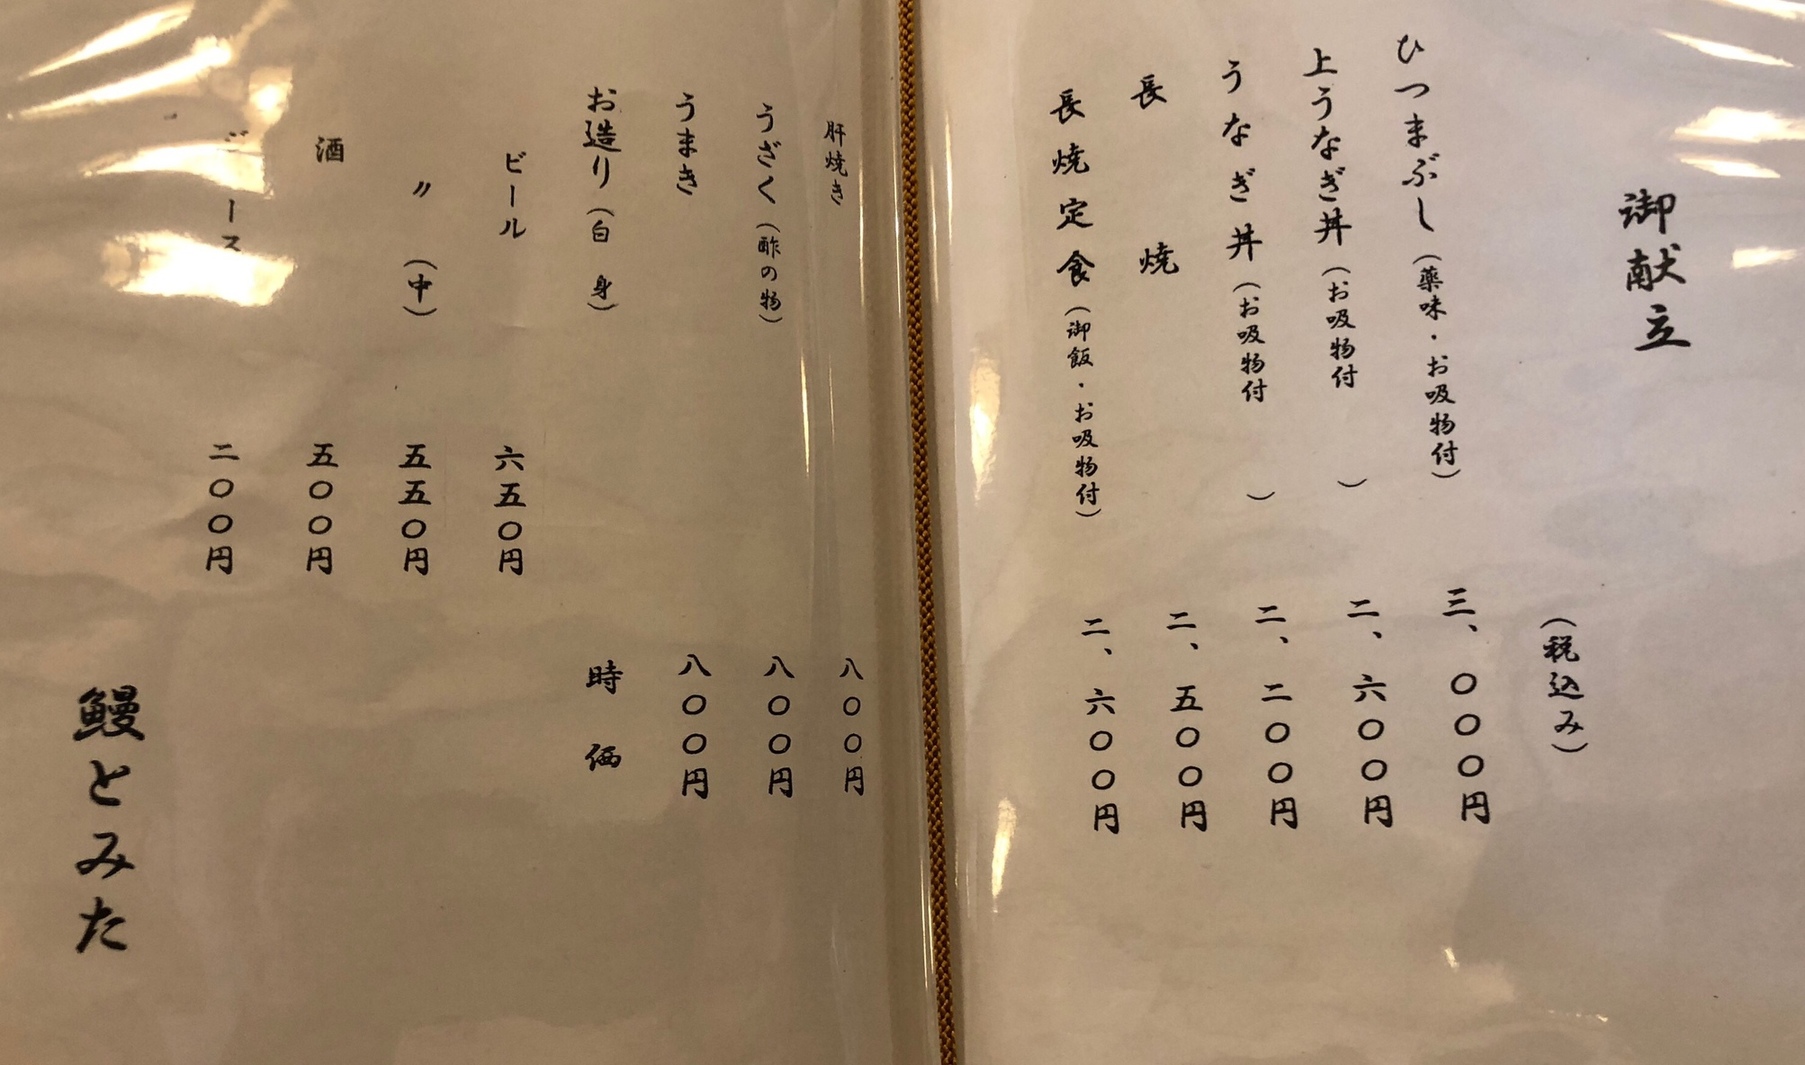 御献立
(税込み)
ひつまぶし(薬味・お吸物付) 三、〇〇〇円
上うなぎ丼(お吸物付) 二、六〇〇円
うなぎ丼(お吸物付) 二、二〇〇円
長焼 二、五〇〇円
長焼定食(御飯・お吸物付) 二、六〇〇円
肝焼き 八〇〇円
うざく(酢の物) 八〇〇円
うまき 八〇〇円
お造り(白身) 時価
ビール 六五〇円
〃(中) 五五〇円
酒 五〇〇円
二〇〇円
鰻とみた